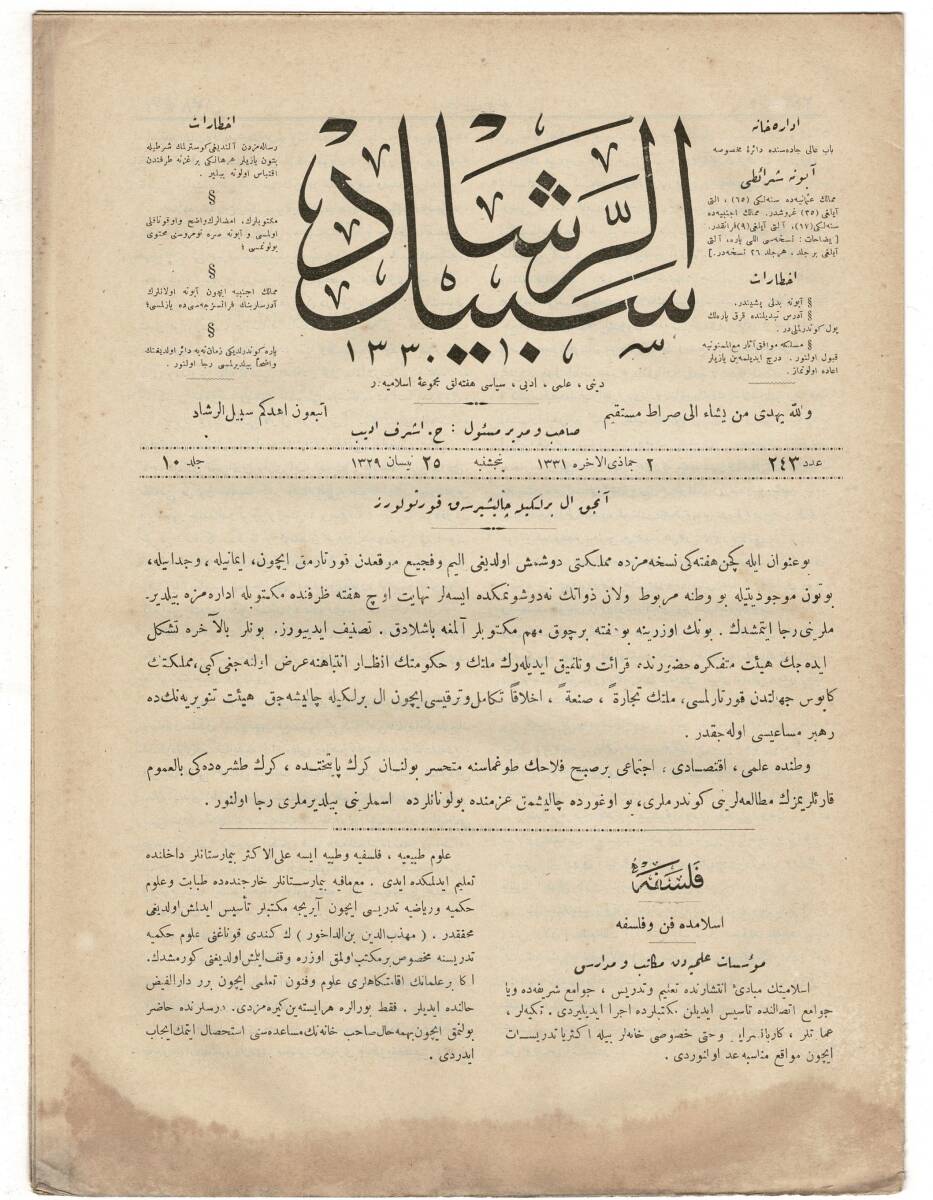 اداره خانه
باب عالی جاده‌سنده دائرهٔ مخصوصه
آبونه شرائطی
ممالك عثمانیه‌ده سنه‌لكی (٦٥) ، التی
آیلغی (٣٥) غروشدر. ممالك اجنبیه‌ده
سنه‌لكی (١٧)، آلتی آیلغی (٩) فرانقدر.
نسخه‌سی اللی پاره، آلتی
آیلغی بر جلد ، هر جلد ٢٦ نسخه‌در.]
اخطارات
§ آبونه بدلی پشیندر.
§ آدرس تبدیلنده قرق پاره‌لك
پول كوندرلملیدر .
§ مسلكه موافق آثار مع الممنونیه
قبول اولنور . درج ایدیلمه‌ین یازیلر
اعاده اولونماز .
سبیل الرشاد
١٣٣٠
اخطارات
رساله‌مزدن آلندیغی كوسترلمك شرطیله
بتون یازیلر هر هانكی بر غزته طرفندن
اقتباس اولونه بیلیر .
§
مكتوبلرك، امضالرك واضح واوقوناقلی
اولمسی و آبونه صره نومروسنی محتوی
بولونمسی ؛
§
ممالك اجنبیه ایچون آبونه اولانلرك
آدرسلرینك فرانسزجه‌سی ده یازلمسی؛
§
پاره كوندرلدیكی زمان نه‌یه دائر اولدیغنك
واضحاً بیلدیرلمسی رجا اولنور .
دینی ، علمی ، ادبی ، سیاسی هفته‌لق مجموعهٔ اسلامیه‌در
والله یهدی من یشاء الی صراط مستقیم
اتبعون اهدكم سبیل الرشاد
صاحب و مدیر مسئول : ح . اشرف ادیب
عدد ٢٤٣
٢ جماذی الآخره ١٣٣١
پنجشنبه
٢٥ نیسان ١٣٢٩
جلد ١٠
آنجق ال برلكیله چالیشیرسه‌ق قورتولورز
بو عنوان ایله كچن هفته‌كی نسخه‌مزده مملكتی دوشمش اولدیغی الیم و فجیع موقعدن قورتارمق ایچون، ایمانیله ، وجدانیله،
بوتون موجودیتیله بو وطنه مربوط اولان ذواتك نه دوشونمكده ایسه‌لر نهایت اوچ هفته ظرفنده مكتوبله اداره‌مزه بیلدیر-
ملرینی رجا ایتمشدك . بونك اوزرینه بو هفته برچوق مهم مكتوبلر آلمغه باشلادق . تصنیف ایدییورز. بونلر بالآخره تشكل
ایده جك هیئت متفكره حضورنده قرائت وتلفیق ایدیله‌رك ملتك و حكومتك انظار انتباهنه عرض اولنه‌جغی كبی، مملكتك
كابوس جهالتدن قورتارلمسی، ملتك تجارةً ، صنعةً ، اخلاقاً تكامل وترقیسی ایچون ال برلكیله چالیشه‌جق هیئت تنویریه‌نك ده
رهبر مساعیسی اوله‌جقدر .
وطنده علمی ، اقتصادی ، اجتماعی بر صبح فلاحك طوغماسنه متحسر بولنان كرك پایتختده ، كرك طشره‌ده‌كی بالعموم
قارئلریمزك مطالعه‌لرینی كوندرملری، بو اوغورده چالیشمق عزمنده بولونانلرده اسملرینی بیلدیرملری رجا اولنور .
فلسفه
اسلامده فن وفلسفه
مؤسسات علمیه‌دن مكاتب و مدارس
اسلامیتك مبادئ انتشارنده تعلیم وتدریس ، جوامع شریفه‌ده ویا
جوامع اتصالنده تأسیس ایدیلن مكتبلرده اجرا ایدیلیردی . تكیه‌لر ،
وحتی خصوصی خانه‌لر بیله اكثریا تدریسات
ایچون مواقع مناسبه عد اولنوردی .
علوم طبیعیه ، فلسفیه وطبیه ایسه علی الاكثر بیمارستانلر داخلنده
تعلیم ایدلمكده ایدی . مع مافیه بیمارستانلر خارجنده‌ده طبابت وعلوم
حكمیه وریاضیه تدریسی ایچون آیریجه مكتبلر تأسیس ایدلمش اولدیغی
محققدر . ( مهذب الدین بن الداخور ) ك كندی قوناغنی علوم حكمیه
تدریسنه مخصوص بر مكتب اولمق اوزره وقف ایلمش اولدیغنی كورمشدك.
اكابر علمانك اقامتكاهلری علوم وفنون تعلمی ایچون برر دار الفیض
حالنده ایدیلر . فقط بورالره هر ایسته‌ین كیره‌مزدی. درسلرنده حاضر
بولنمق ایچون بهمه حال صاحب خانه‌نك مساعده‌سنی استحصال ایتمك ایجاب
ایدردی .